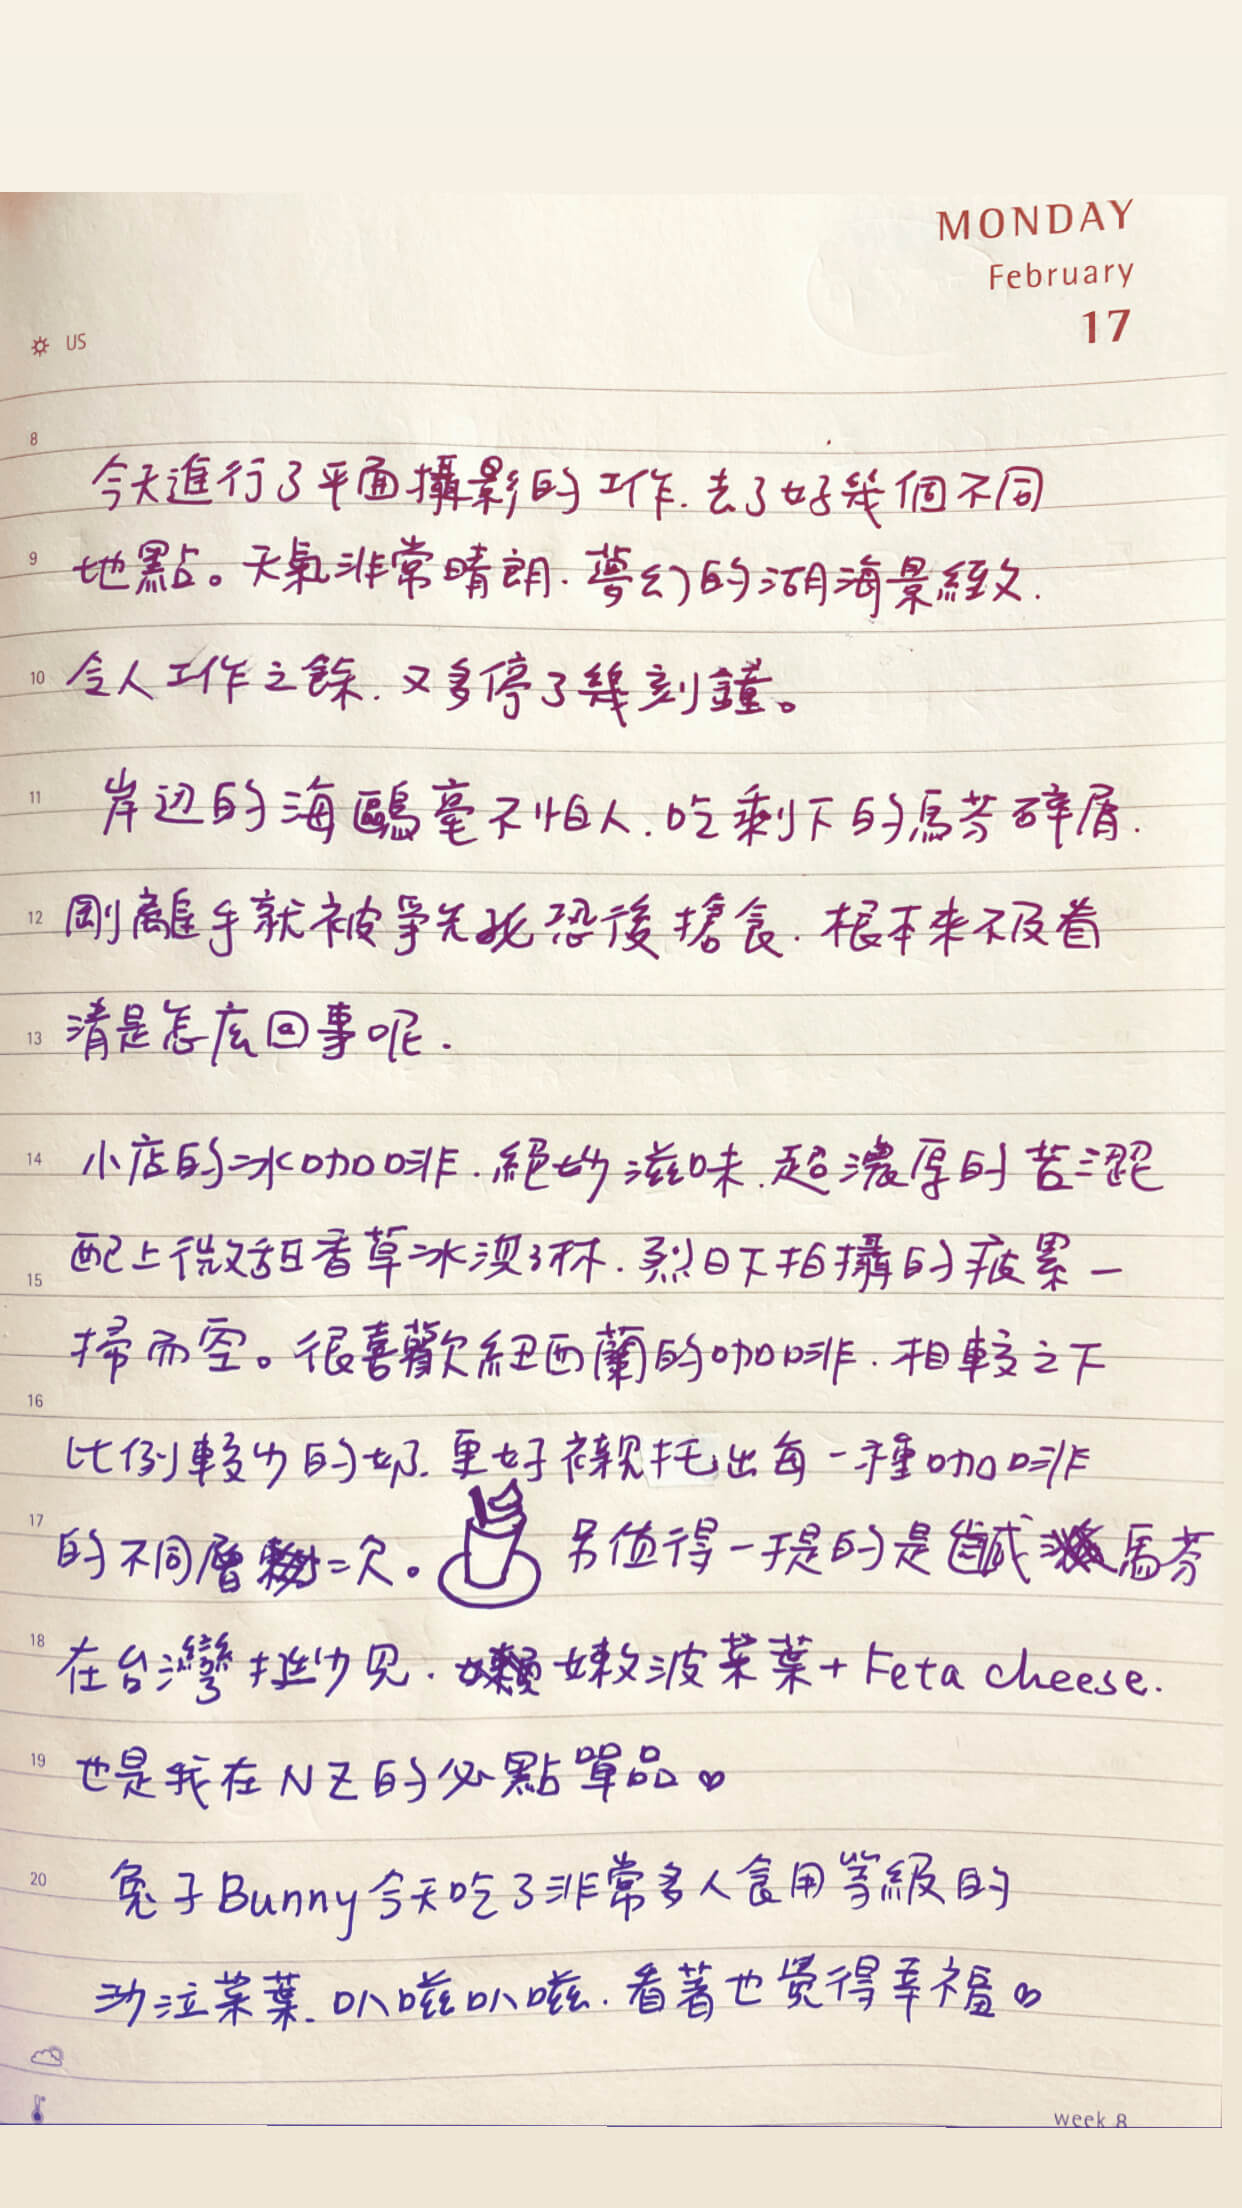 MONDAY
February
17
US
8
今天進行了平面攝影的工作.去了好幾個不同
9
地點。天氣非常晴朗.夢幻的湖海景緻.
10
令人工作之餘.又多停了幾刻鐘。
11
岸边的海鷗毫不怕人.吃剩下的馬芬碎屑.
12
剛離手就被爭先恐後搶食.根本來不及看
13
清是怎麼回事呢.
14
小店的冰咖啡.絕妙滋味.超濃厚的苦澀
配上微甜香草冰淇淋.烈日下拍攝的疲累一
15
掃而空。很喜歡紐西蘭的咖啡.相較之下
16
比例較少的奶.更好襯托出每一種咖啡
17
的不同層次。另值得一提的是鹹馬芬
18
在台灣挺少見.嫩菠菜葉+Feta cheese.
19
也是我在NZ的必點單品。♡
20
兔子Bunny今天吃了非常多人食用等級的
沙拉菜葉.叭嗞叭嗞.看著也覺得幸福。♡
week 8